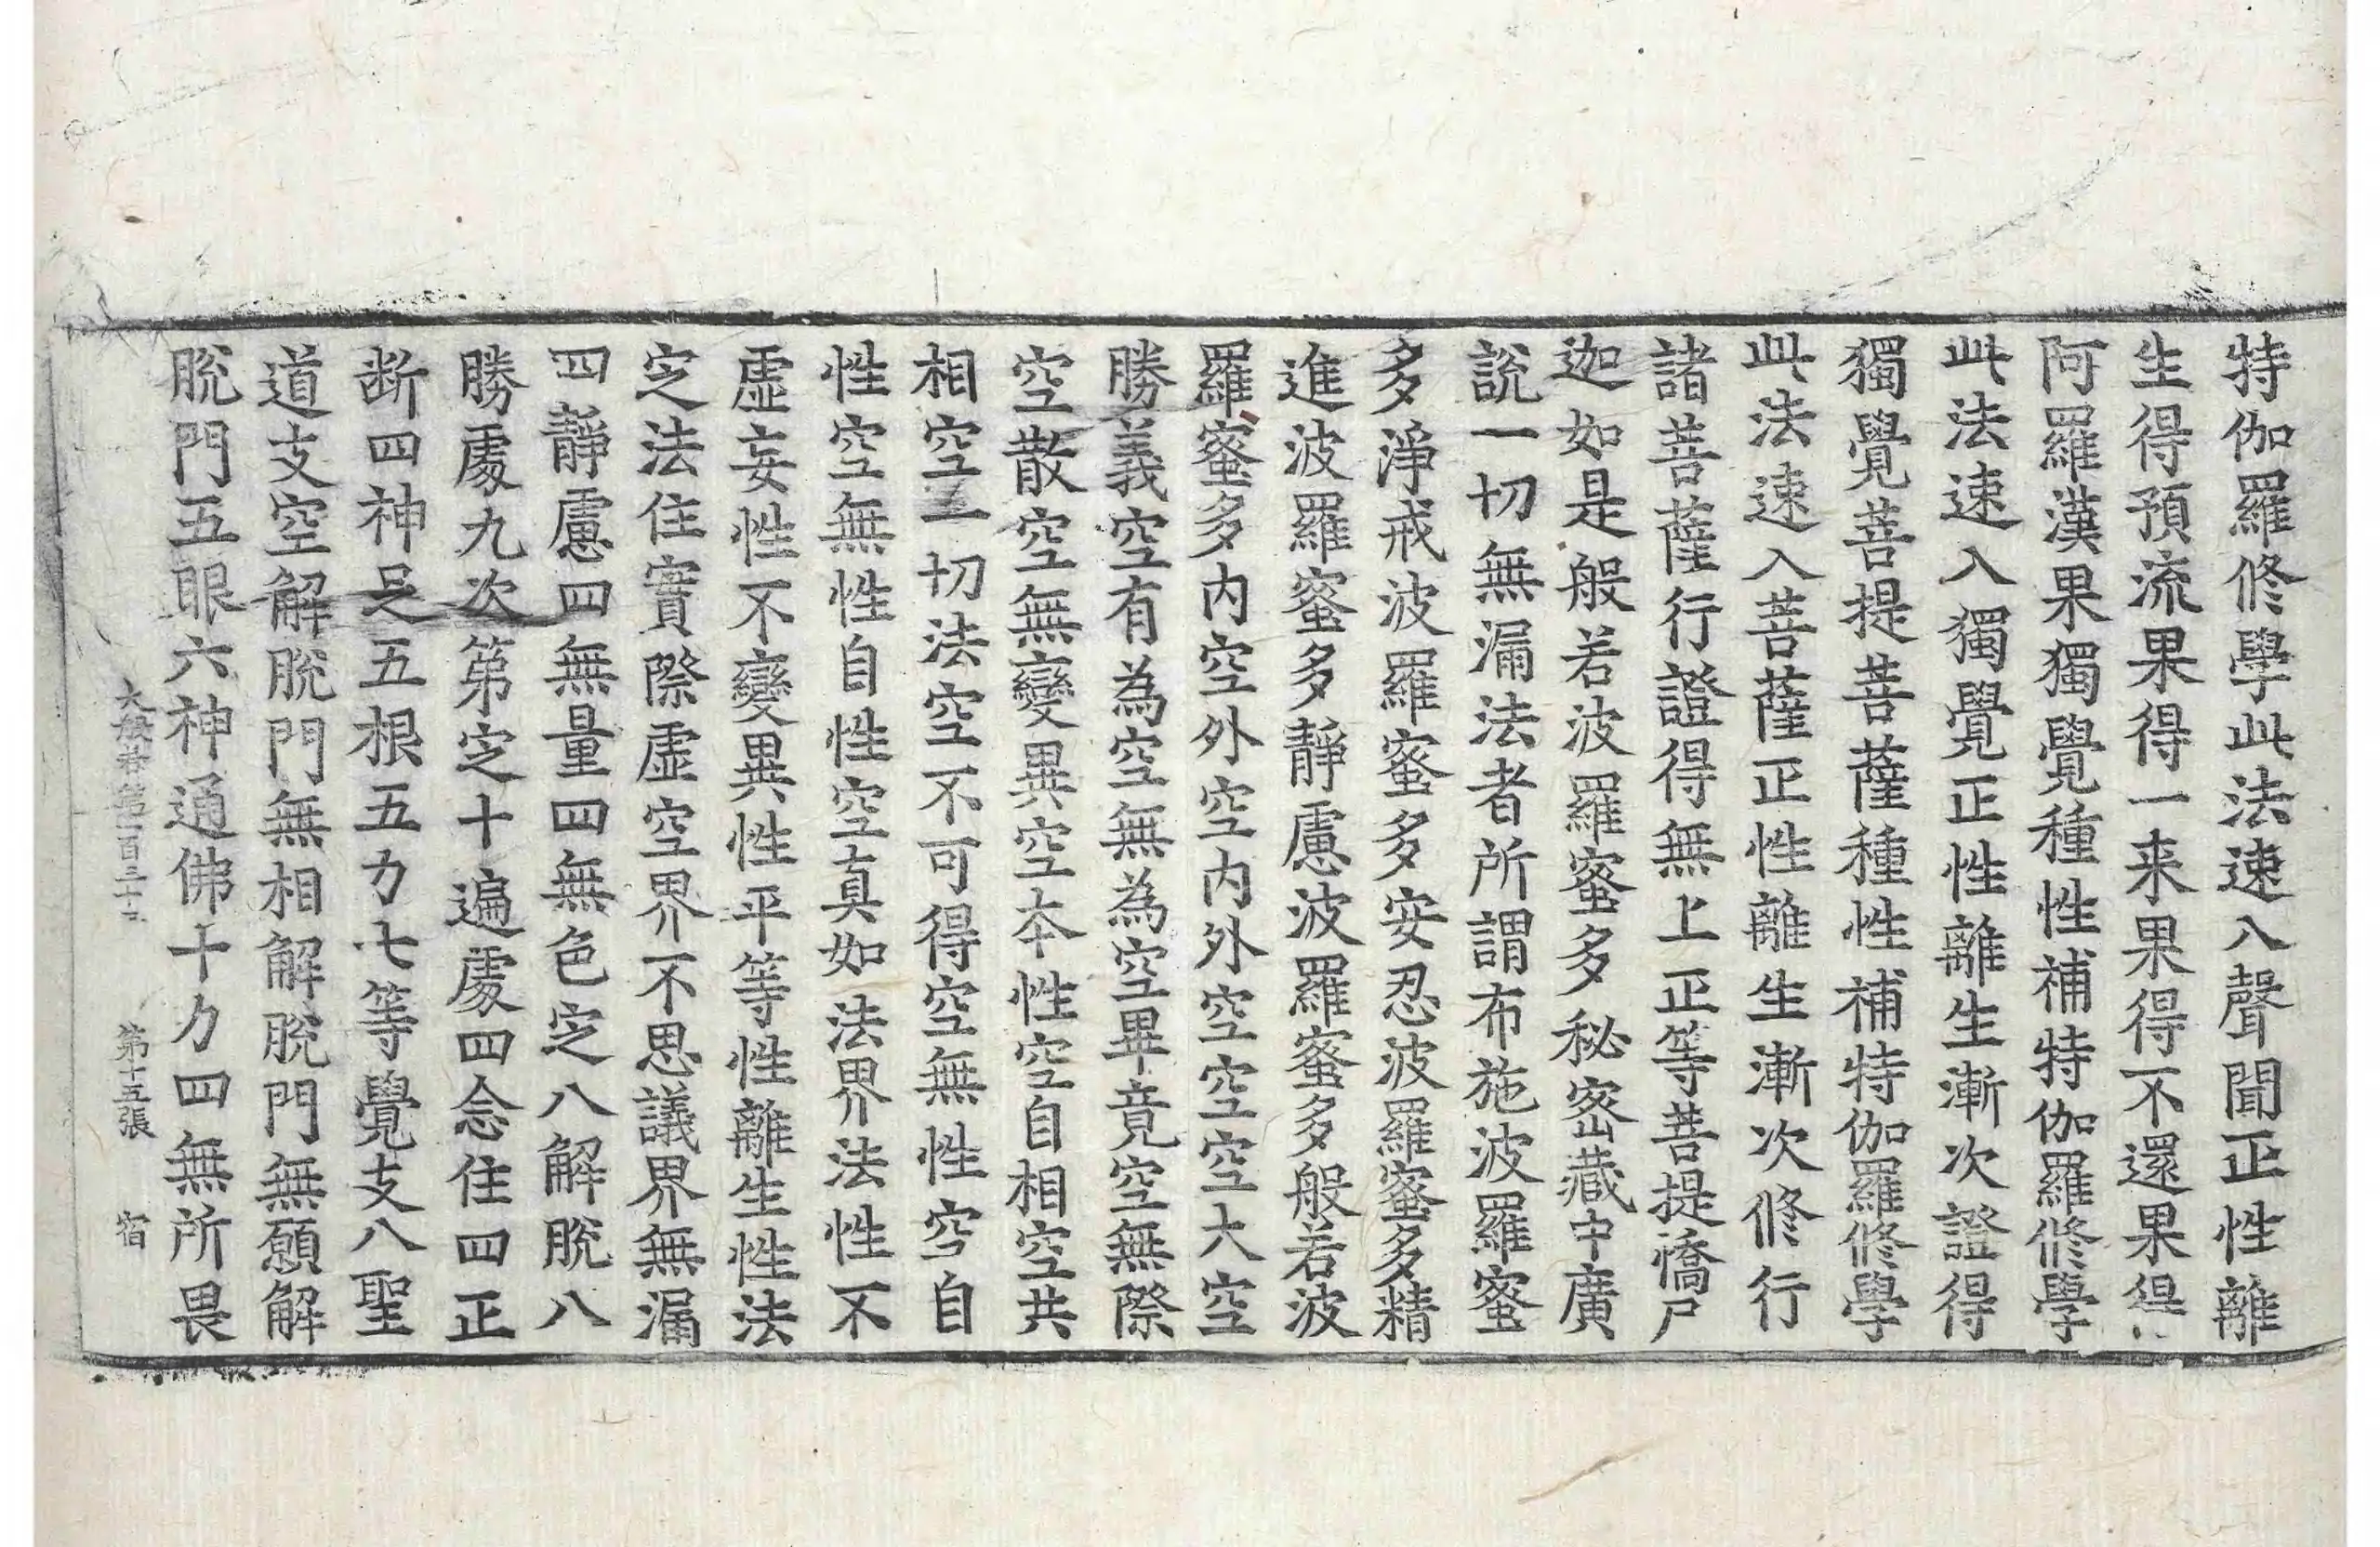 特伽羅修學此法速入聲聞正性離
生得預流果得一来果得不還果得
阿羅漢果獨覺種性補特伽羅修學
此法速入獨覺正性離生漸次證得
獨覺菩提菩薩種性補特伽羅修學
此法速入菩薩正性離生漸次修行
諸菩薩行證得無上正等菩提憍尸
迦如是般若波羅蜜多秘密藏中廣
說一切無漏法者所謂布施波羅蜜
多淨戒波羅蜜多安忍波羅蜜多精
進波羅蜜多靜慮波羅蜜多般若波
羅蜜多內空外空內外空空空大空
勝義空有為空無為空畢竟空無際
空散空無變異空本性空自相空共
相空一切法空不可得空無性空自
性空無性自性空真如法界法性不
虛妄性不變異性平等性離生性法
定法住實際虛空界不思議界無漏
四靜慮四無量四無色定八解脫八
勝處九次第定十遍處四念住四正
断四神足五根五力七等覺支八聖
道支空解脫門無相解脫門無願解
脫門五眼六神通佛十力四無所畏
大般若第一百三十三 第十五張 宿